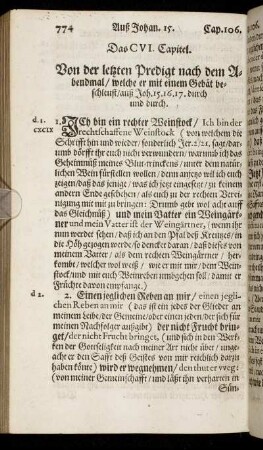 774 Auß Johan. 15. Cap. 106.
Das CVI. Capitel.
Von der letzten Predigt nach dem A-
bendmal / welche er mit einem Gebät be-
schleust / auß Joh. 15. 16. 17. durch
und durch.
d 1. 1. Ich bin ein rechter Weinstock / Ich bin der
CXCIX rechtschaffene Weinstock (von welchem die
Schrifft hin und wieder / sonderlich Jer. 2/21. sage / dar-
umb dörfft ihr euch nicht verwundern / warumb ich das
Geheimnüß meines Blut-trinckens / unter dem natür-
lichen Wein fürstellen wollen / denn anzeo will ich euch
zeigen / daß das jenige / was ich jetzt angezeigt / zu keinem
andern Ende geschehen / als euch zu der rechten Vereini-
gung mit mir zu bringen: Drumb gebt wol acht auff
das Gleichnüß) und mein Vatter ein Weingärt-
ner und mein Vater ist der Weingärtner / (wenn ihr
nun werdet sehen / daß ich an den Pfal deß Kreutzes / in
die Höh gezogen werde / so dencket daran / daß dieses von
meinem Vatter / als dem rechten Weingärtner / her-
kombt / welcher wol weiß / wie er mit mir / dem Wein-
stock / und mit euch Weinreben umbgehen soll / damit er
Früchte davon empfange.)
d 2. 2. Einen jeglichen Reben an mir / einen jegli-
chen Reben an mir (das ist ein jedes der Glieder an
meinem Leibe / der Gemeine / oder einen jeden / der sich für
meinen Nachfolger außgibt) der nicht Frucht brin-
get / der nicht Frucht bringet, (und sich in den Werk-
ken der Gottseligkeit nach meiner Art nicht über / unge-
acht er den Safft deß Geistes von mir reichlich daran
haben könte) wird er wegnehmen / den thut er weg:
(von meiner Gemeinschafft / und läßt ihn verharren in
Sün-